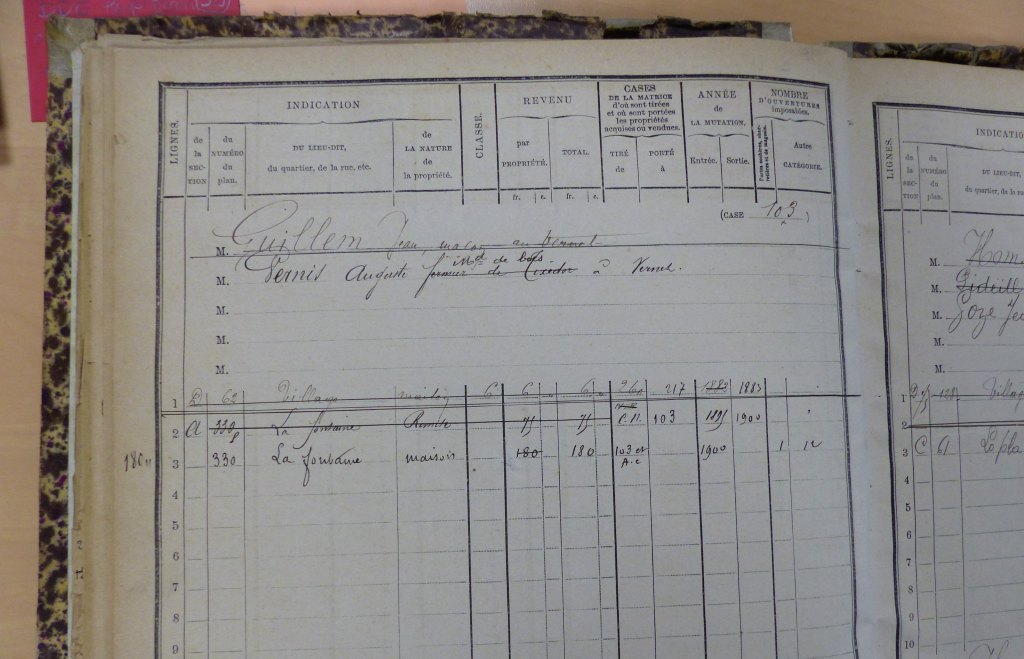 LIGNES.
INDICATION
de la SECTION
du NUMÉRO du plan.
DU LIEU-DIT, du quartier, de la rue, etc.
de LA NATURE de la propriété.
CLASSE.
REVENU
par PROPRIÉTÉ.
TOTAL.
CASES DE LA MATRICE d'où sont tirées et où sont portées les propriétés acquises ou vendues.
TIRÉ de
PORTÉ à
ANNÉE de LA MUTATION.
Entrée.
Sortie.
NOMBRE D'OUVERTURES imposables.
Autre CATÉGORIE.
fr. c. fr. c.
(CASE 103)
M. Guillem Jean, maçon au Vernet
Md de bois
M. Vernis Auguste fermier de à Vernet.
M.
M.
M.
1 D 62 Village maison 6 6 6 260 217 1882 1883
2 A 330p La fontaine Remise 75 75 103 1895 1900
180 3 330 La fontaine maison 180 180 103 et A.c 1900 1 12
4
5
6
7
8
9
LIGNES.
INDICATIO
de la SECTION
du NUMÉRO du plan.
DU LIEU-DIT,
du quartier, de la rue,
M.
M.
M. Goze Je
M.
M.
1 Villag
2
3 C 61
4
5
6
7
8
9
10